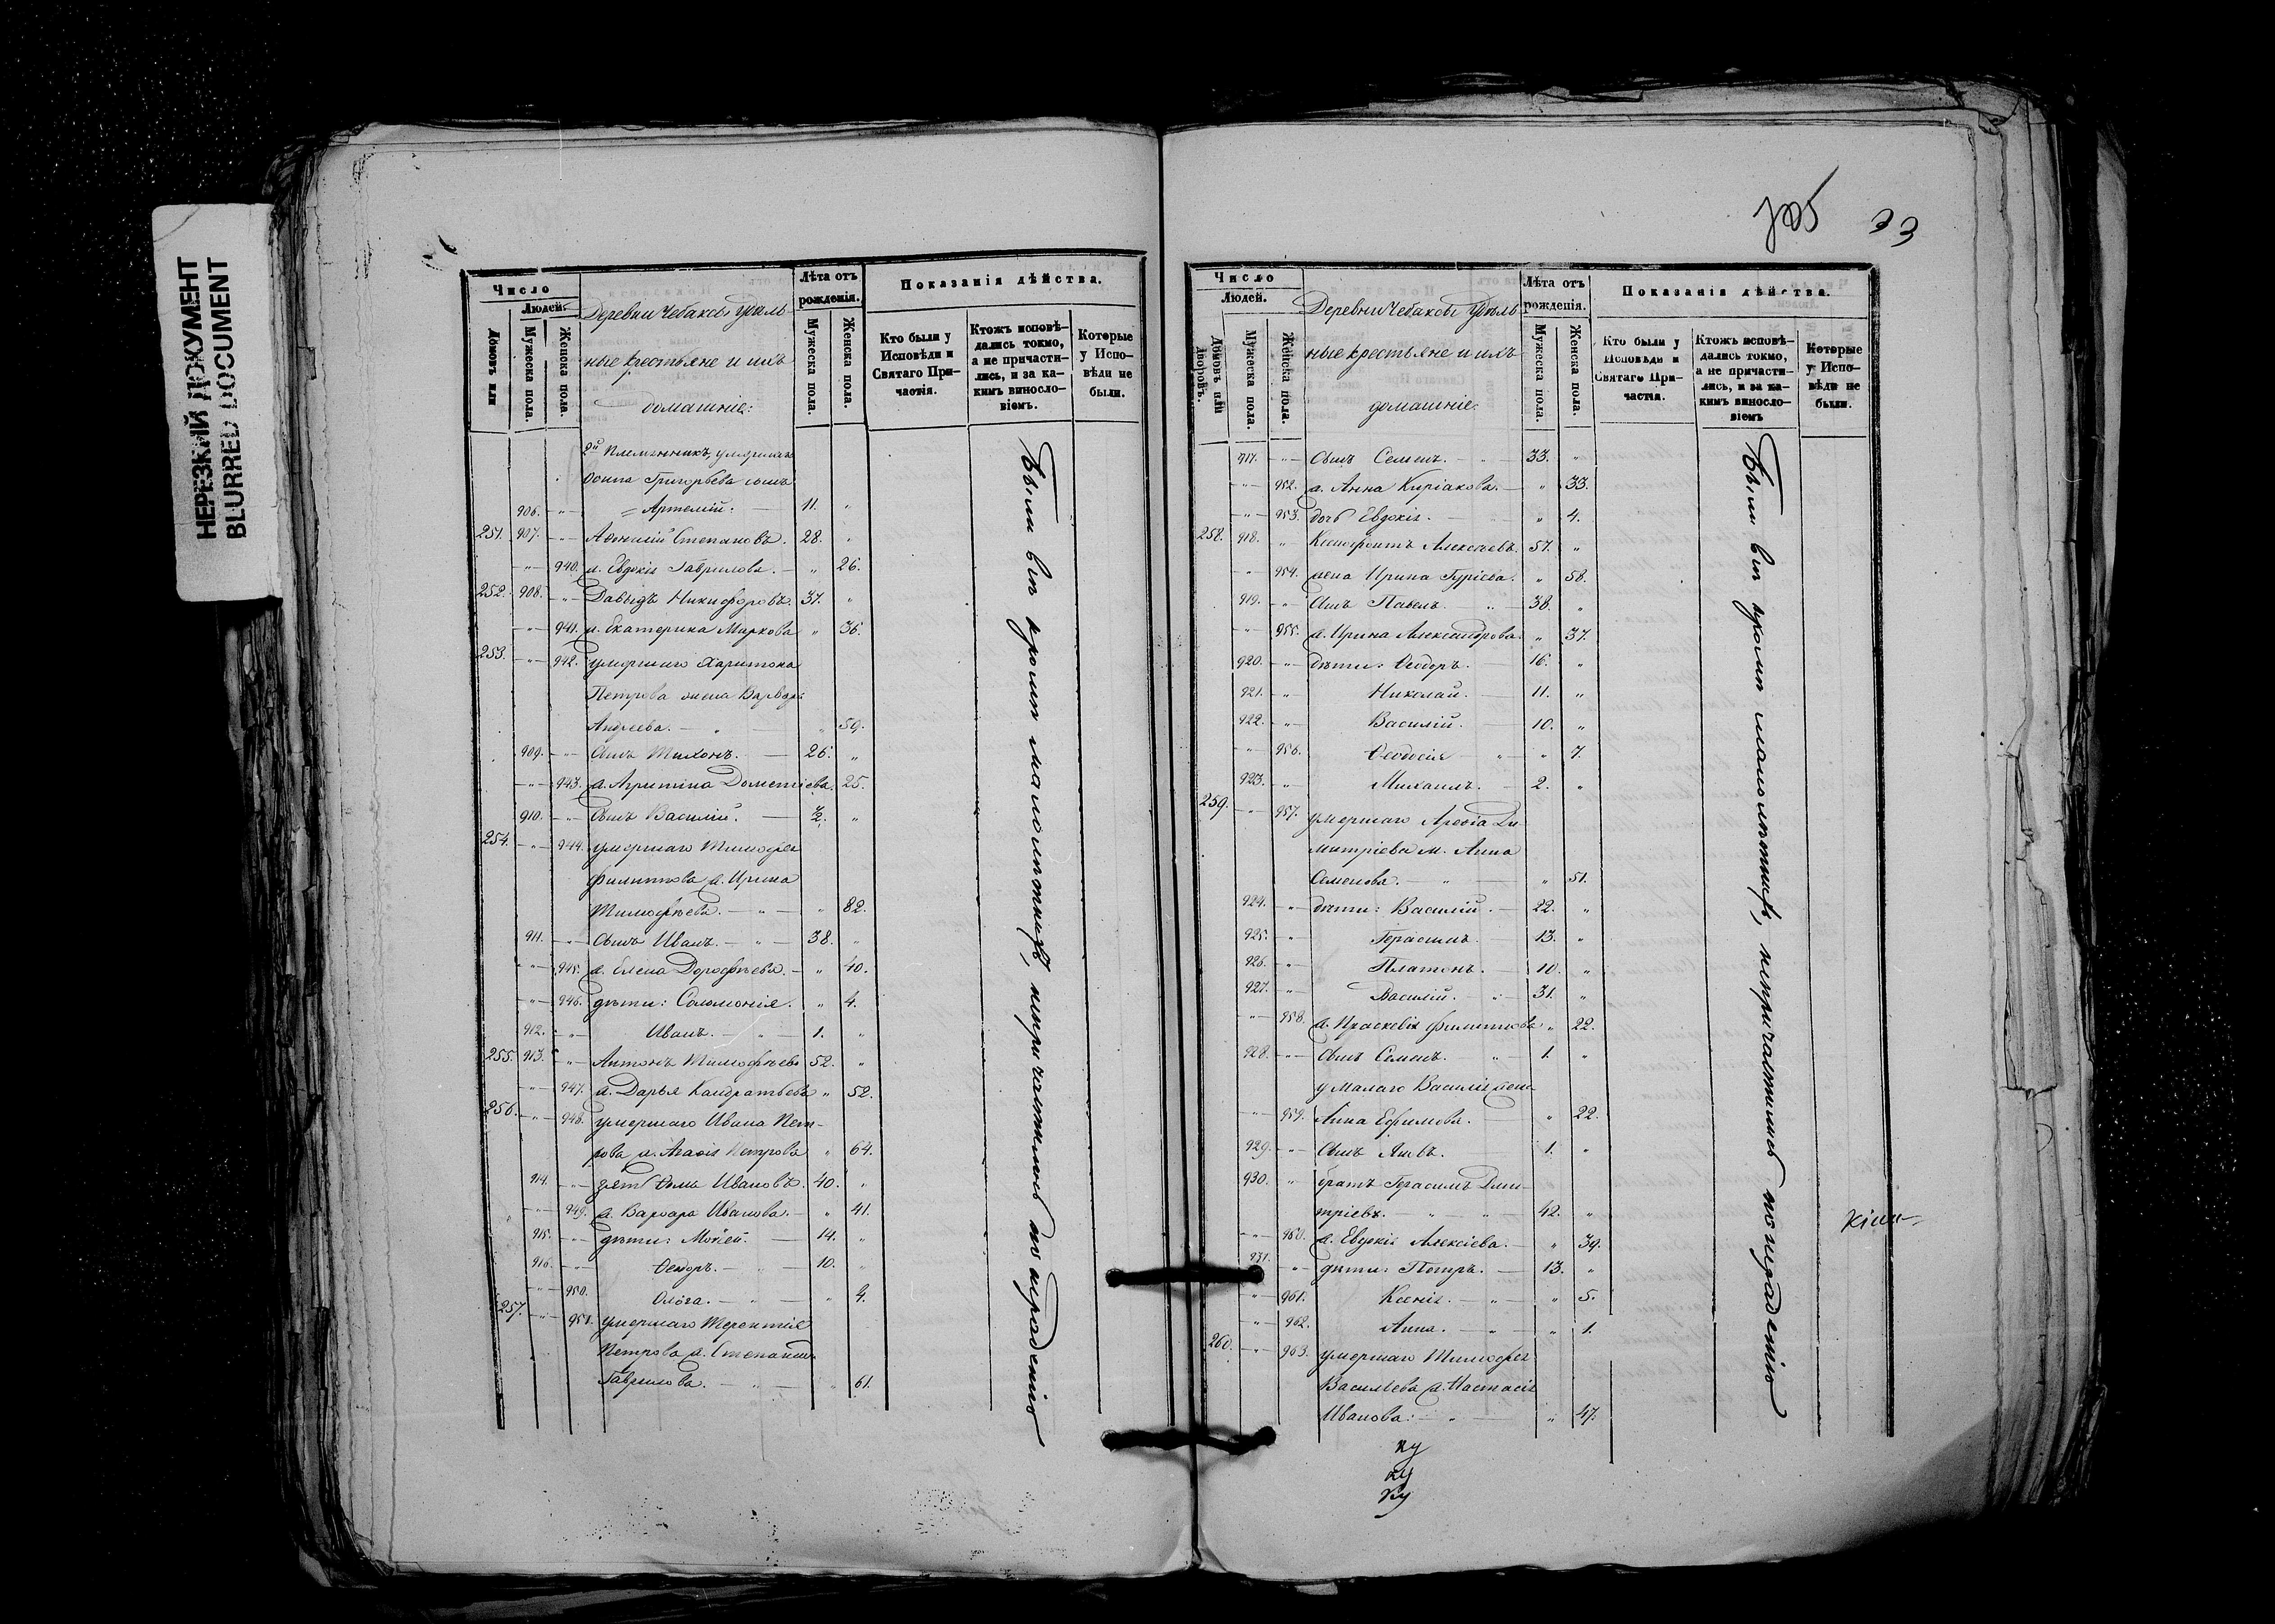 НЕРЕЗКИЙ ДОКУМЕНТ
BLURRED DOCUMENT
Число
Людей.
Домовъ или
Мужеска пола.
Женска пола.
Деревни Чебаксы Удѣль-
ные крестьяне и ихъ
домашніе:
Лѣта отъ рожденія.
Мужеска пола.
Женска пола.
Показанія дѣйства.
Кто были у Исповѣди и Святаго Причастія.
Ктожъ исповѣдались токмо, а не причастились, и за какимъ винословіемъ.
Которые у Исповѣди не были.
2й Племянникъ, умершаго
Осипа Григорьева сынъ
906. Артемій. 11.
251. 907. Степановъ. 28.
940. ж. Евдокія Гаврилова. 26.
252. 908. Давыдъ Никифоровъ. 37.
941. ж. Екатерина Маркова 36.
253. 942. умершаго Харитона
Петрова жена Варвара
Андреева. 59.
909. Сынъ Тихонъ. 26.
943. ж. Дометіева. 25.
910. Сынъ Василій. ½.
254. 944. умершаго Тимофея
Филиппова ж. Ирина
Тимофѣева. 82.
911. Сынъ Иванъ. 38.
945. ж. Елена Дорофѣева. 40.
946. дѣти: Соломонія. 4.
912. Иванъ. 1.
255. 913. Антонъ Тимофѣевъ 52.
947. ж. Дарья Кандратьева 52.
256. 948. умершаго Ивана Пет-
рова ж. Агафія Петрова 64.
914. зять Ѳома Ивановъ. 40.
949. ж. Варвара Иванова. 41.
915. дѣти: Моѵсей. 14.
916. Ѳеодоръ. 10.
950. Ольга. 4.
257. 951. умершаго Терентія
Петрова ж. Степанида
Гаврилова. 61.
Были всѣ кромѣ малолѣтнихъ, непричастились по нерадѣнію
33
Число
Людей.
Домовъ или дворовъ.
Мужеска пола.
Женска пола.
Деревни Чебаксы Удѣль-
ные крестьяне и ихъ
домашніе.
Лѣта отъ рожденія.
Мужеска пола.
Женска пола.
Показанія дѣйства.
Кто были у Исповѣди и Святаго Причастія.
Ктожъ исповѣдались токмо, а не причастились, и за какимъ винословіемъ
Которые у Исповѣди не были.
917. Сынъ Семенъ. 33.
952. ж. Анна Киріакова. 33.
953. дочь Евдокія. 4.
258. 918. Ксенофонтъ Алексѣевъ. 57.
954. жена Ирина Гуріева. 58.
919. Сынъ Павелъ. 38.
955. ж. Ирина Александрова. 37.
920. дѣти: Ѳеодоръ. 16.
921. Николай. 11.
922. Василій. 10.
956. Ѳеодосія 7.
923. Михаилъ. 2.
259. 957. умершаго Арефія Ди-
митріева ж. Анна
Семенова. 51.
924. дѣти: Василій. 22.
925. Герасимъ. 13.
926. Платонъ. 10.
927. Василій. 31.
958. ж. Праскевія Филиппова 22.
928. Сынъ Семенъ. 1.
у Малаго Василія жена
959. Анна Ефимова. 22.
929. Сынъ 1.
930. братъ Герасимъ Дми-
тріевъ. 42.
960. ж. Евдокія Алексіева. 39.
931. дѣти: Петръ. 13.
961. Ксенія. 5.
962. Анна. 1.
260. 963. умершаго Тимофея
Васильева ж. Настасія
Иванова: 47.
Были всѣ кромѣ малолѣтнихъ, непричастились по нерадѣнію